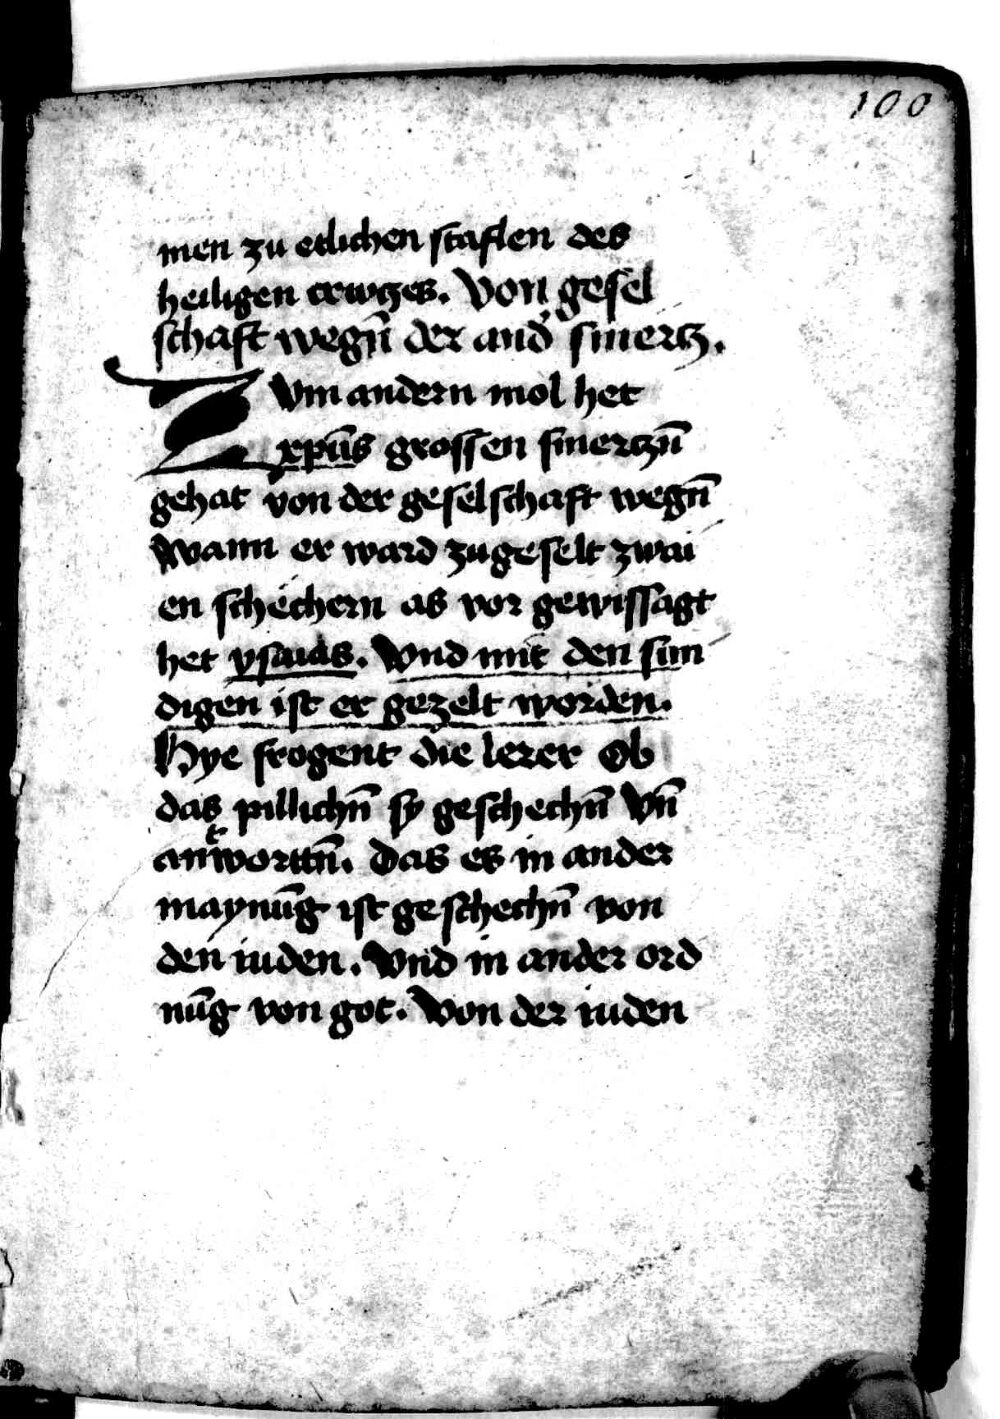 100
men zu etlichen staflen des
heiligen crwtzes. Von gesel
schaft wegn̄ der and̓ smertz.
Zvm andern mol het
xpūs grossen smertzn̄
gehat von der geselschaft wegn̄
Wann er ward zugeselt zwai
en schechern as vor gewissagt
het ysaias. Vnd mit den sun
digen ist er gezelt worden.
Hye frogent die lerer Ob
das pillichn̄ sy geschechn̄ Vn̄
antworttn̄. Das es in ander
maynūg ist geschechn̄ von
den iuden. Vnd in ander ord
nūg von got. Von der iuden